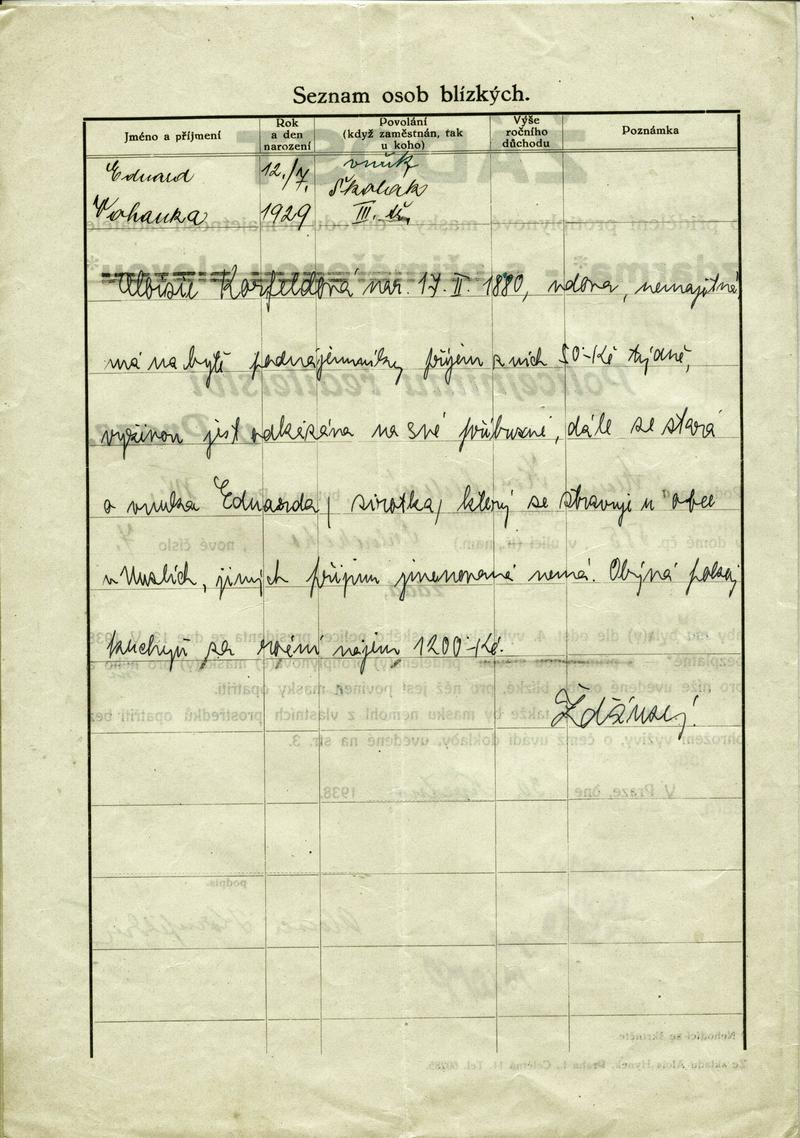 Seznam osob blízkých.
Jméno a příjmení
Rok a den narození
Povolání (když zaměstnán, tak u koho)
Výše ročního důchodu
Poznámka
Eduard 12./7. vnuk
školák
Vohanka 1929 III. tř.
Aloisie Korfeldová nar. 17. II. 1880, vdova, nemajetná
má na bytě podnájemníky, příjem z nich 50-Kč týdně,
výživou jest odkázána na své příbuzné, dále se stará
o vnuka Eduarda / sirotka / který se stravuje u obce
v Nuslích, jiných příjmu jmenovaná nemá. Obývá pokoj
kuchyň za roční nájem 1200-Kč.
Ždánský.